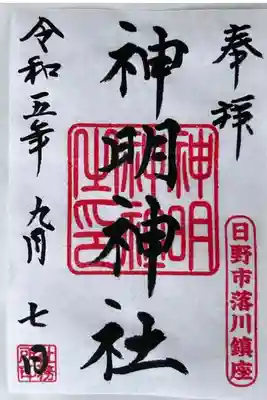 奉拝
日野市落川鎮座
神明神社
令和五年九月七日